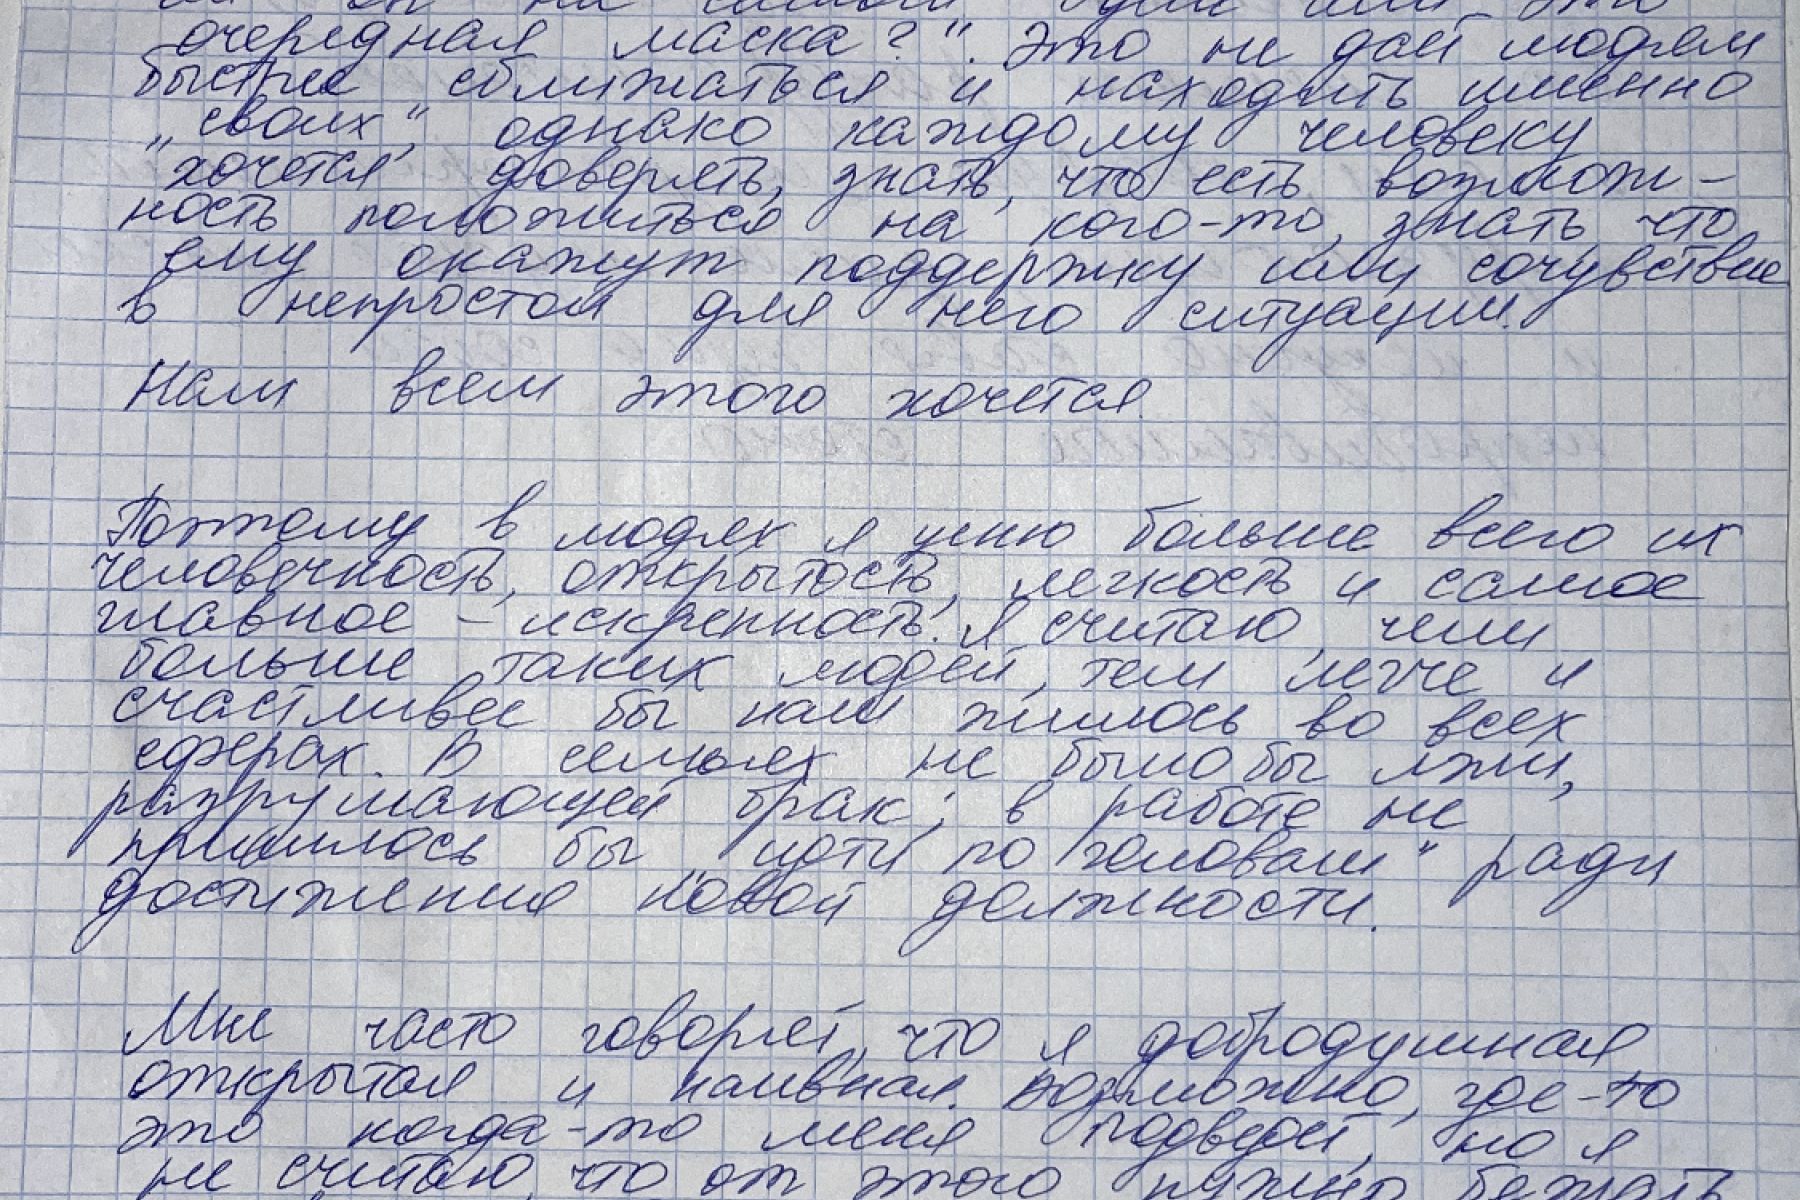 он на самом деле или это
очередная маска?". Это не даёт людям
быстрее сближаться и находить именно
„своих", однако каждому человеку
хочется доверять, знать, что есть возмож-
ность положиться на кого-то, знать что
ему окажут поддержку или сочувствие
в непростой для него ситуации.
Нам всем этого хочется.
Поэтому в людях я ценю больше всего их
человечность, открытость, легкость и самое
главное - искренность. Я считаю, чем
больше таких людей, тем легче и
счастливее бы нам жилось во всех
сферах. В семьях не было бы лжи,
разрушающей брак; в работе не
пришлось бы „идти по головам" ради
достижения новой должности.
Мне часто говорят, что я добродушная
открытая и наивная. Возможно, где-то
это когда-то меня подведёт, но я
не считаю, что от этого нужно бежать